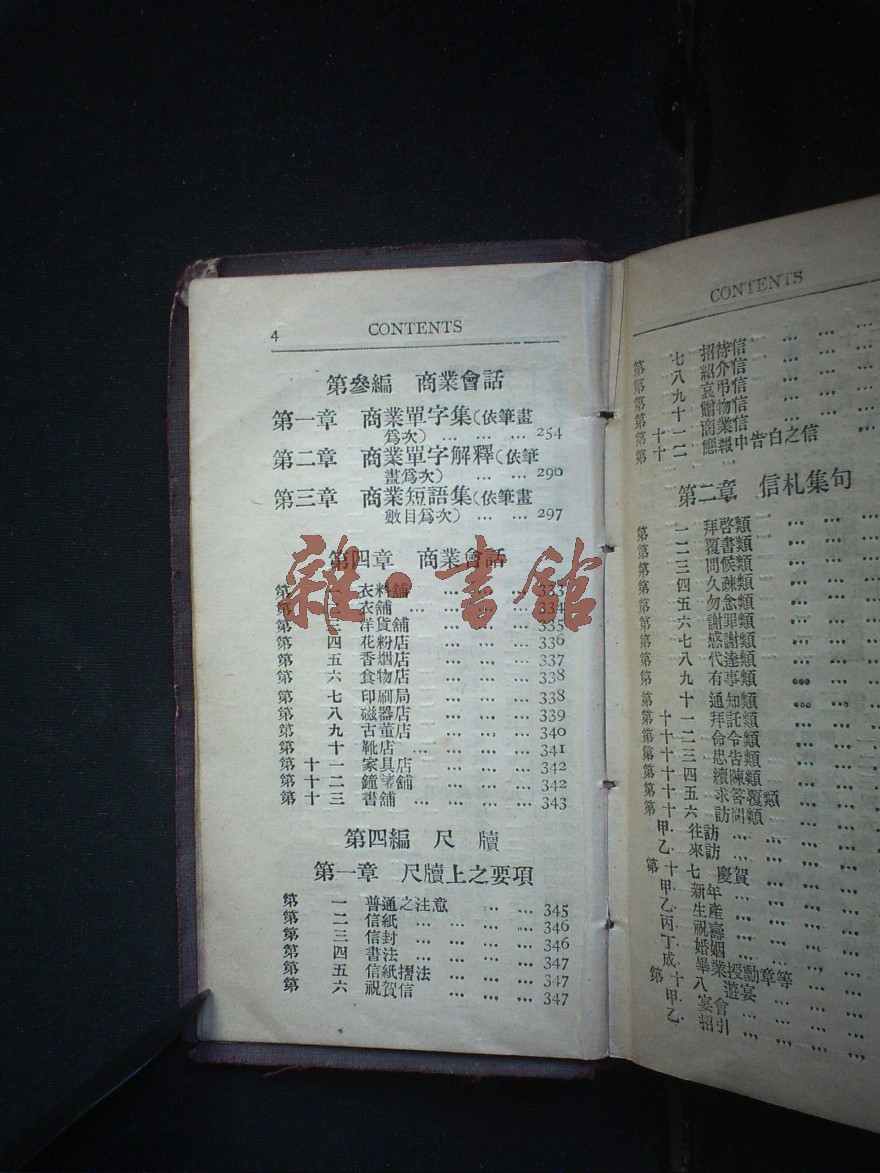 4 CONTENTS
第參編 商業會話
第一章 商業單字集(依筆畫
爲次) … … … 254
第二章 商業單字解釋(依筆
畫爲次) … … 290
第三章 商業短語集(依筆畫
數目爲次) … … 297
第四章 商業會話
第 一 衣料舖 … … … 333
第 二 衣舖 … … … … 334
第 三 洋貨舖 … … … 335
第 四 花粉店 … … … 336
第 五 香烟店 … … … 337
第 六 食物店 … … … 338
第 七 印刷局 … … … 338
第 八 磁器店 … … … 339
第 九 古董店 … … … 340
第 十 靴店 … … … … 341
第十一 家具店 … … … 342
第十二 鐘錶舖 … … … 342
第十三 書舖 … … … … 343
第四編 尺牘
第一章 尺牘上之要項
第 一 普通之注意 … … 345
第 二 信紙 … … … … 346
第 三 信封 … … … … 346
第 四 書法 … … … … 347
第 五 信紙摺法 … … … 347
第 六 祝賀信 … … … 347
雜·書館
CONTENTS
第 七 招待信 … … …
第 八 紹介信 … … …
第 九 哀弔信 … … …
第 十 贈物信 … … …
第十一 商業信 … … …
第十二 應報中告白之信 …
第二章 信札集句
第 一 拜啓類 … … …
第 二 覆書類 … … …
第 三 問候類 … … …
第 四 久疎類 … … …
第 五 勿念類 … … …
第 六 謝罪類 … … …
第 七 感謝類 … … …
第 八 代達類 … … …
第 九 有事類 … … …
第 十 通知類 … … …
第十一 拜託類 … … …
第十二 命令類 … … …
第十三 忠告類 … … …
第十四 續陳類 … … …
第十五 求答覆類 … …
第十六 訪問類 … … …
甲. 往訪 … … …
乙. 來訪 … … …
第十七 慶賀 … … …
甲. 新年 … … …
乙. 生產 … … …
丙. 祝壽 … … …
丁. 婚姻 … … …
戊 畢業授勳章等
第十八 宴會 … … …
甲.
乙. 招引 … … …